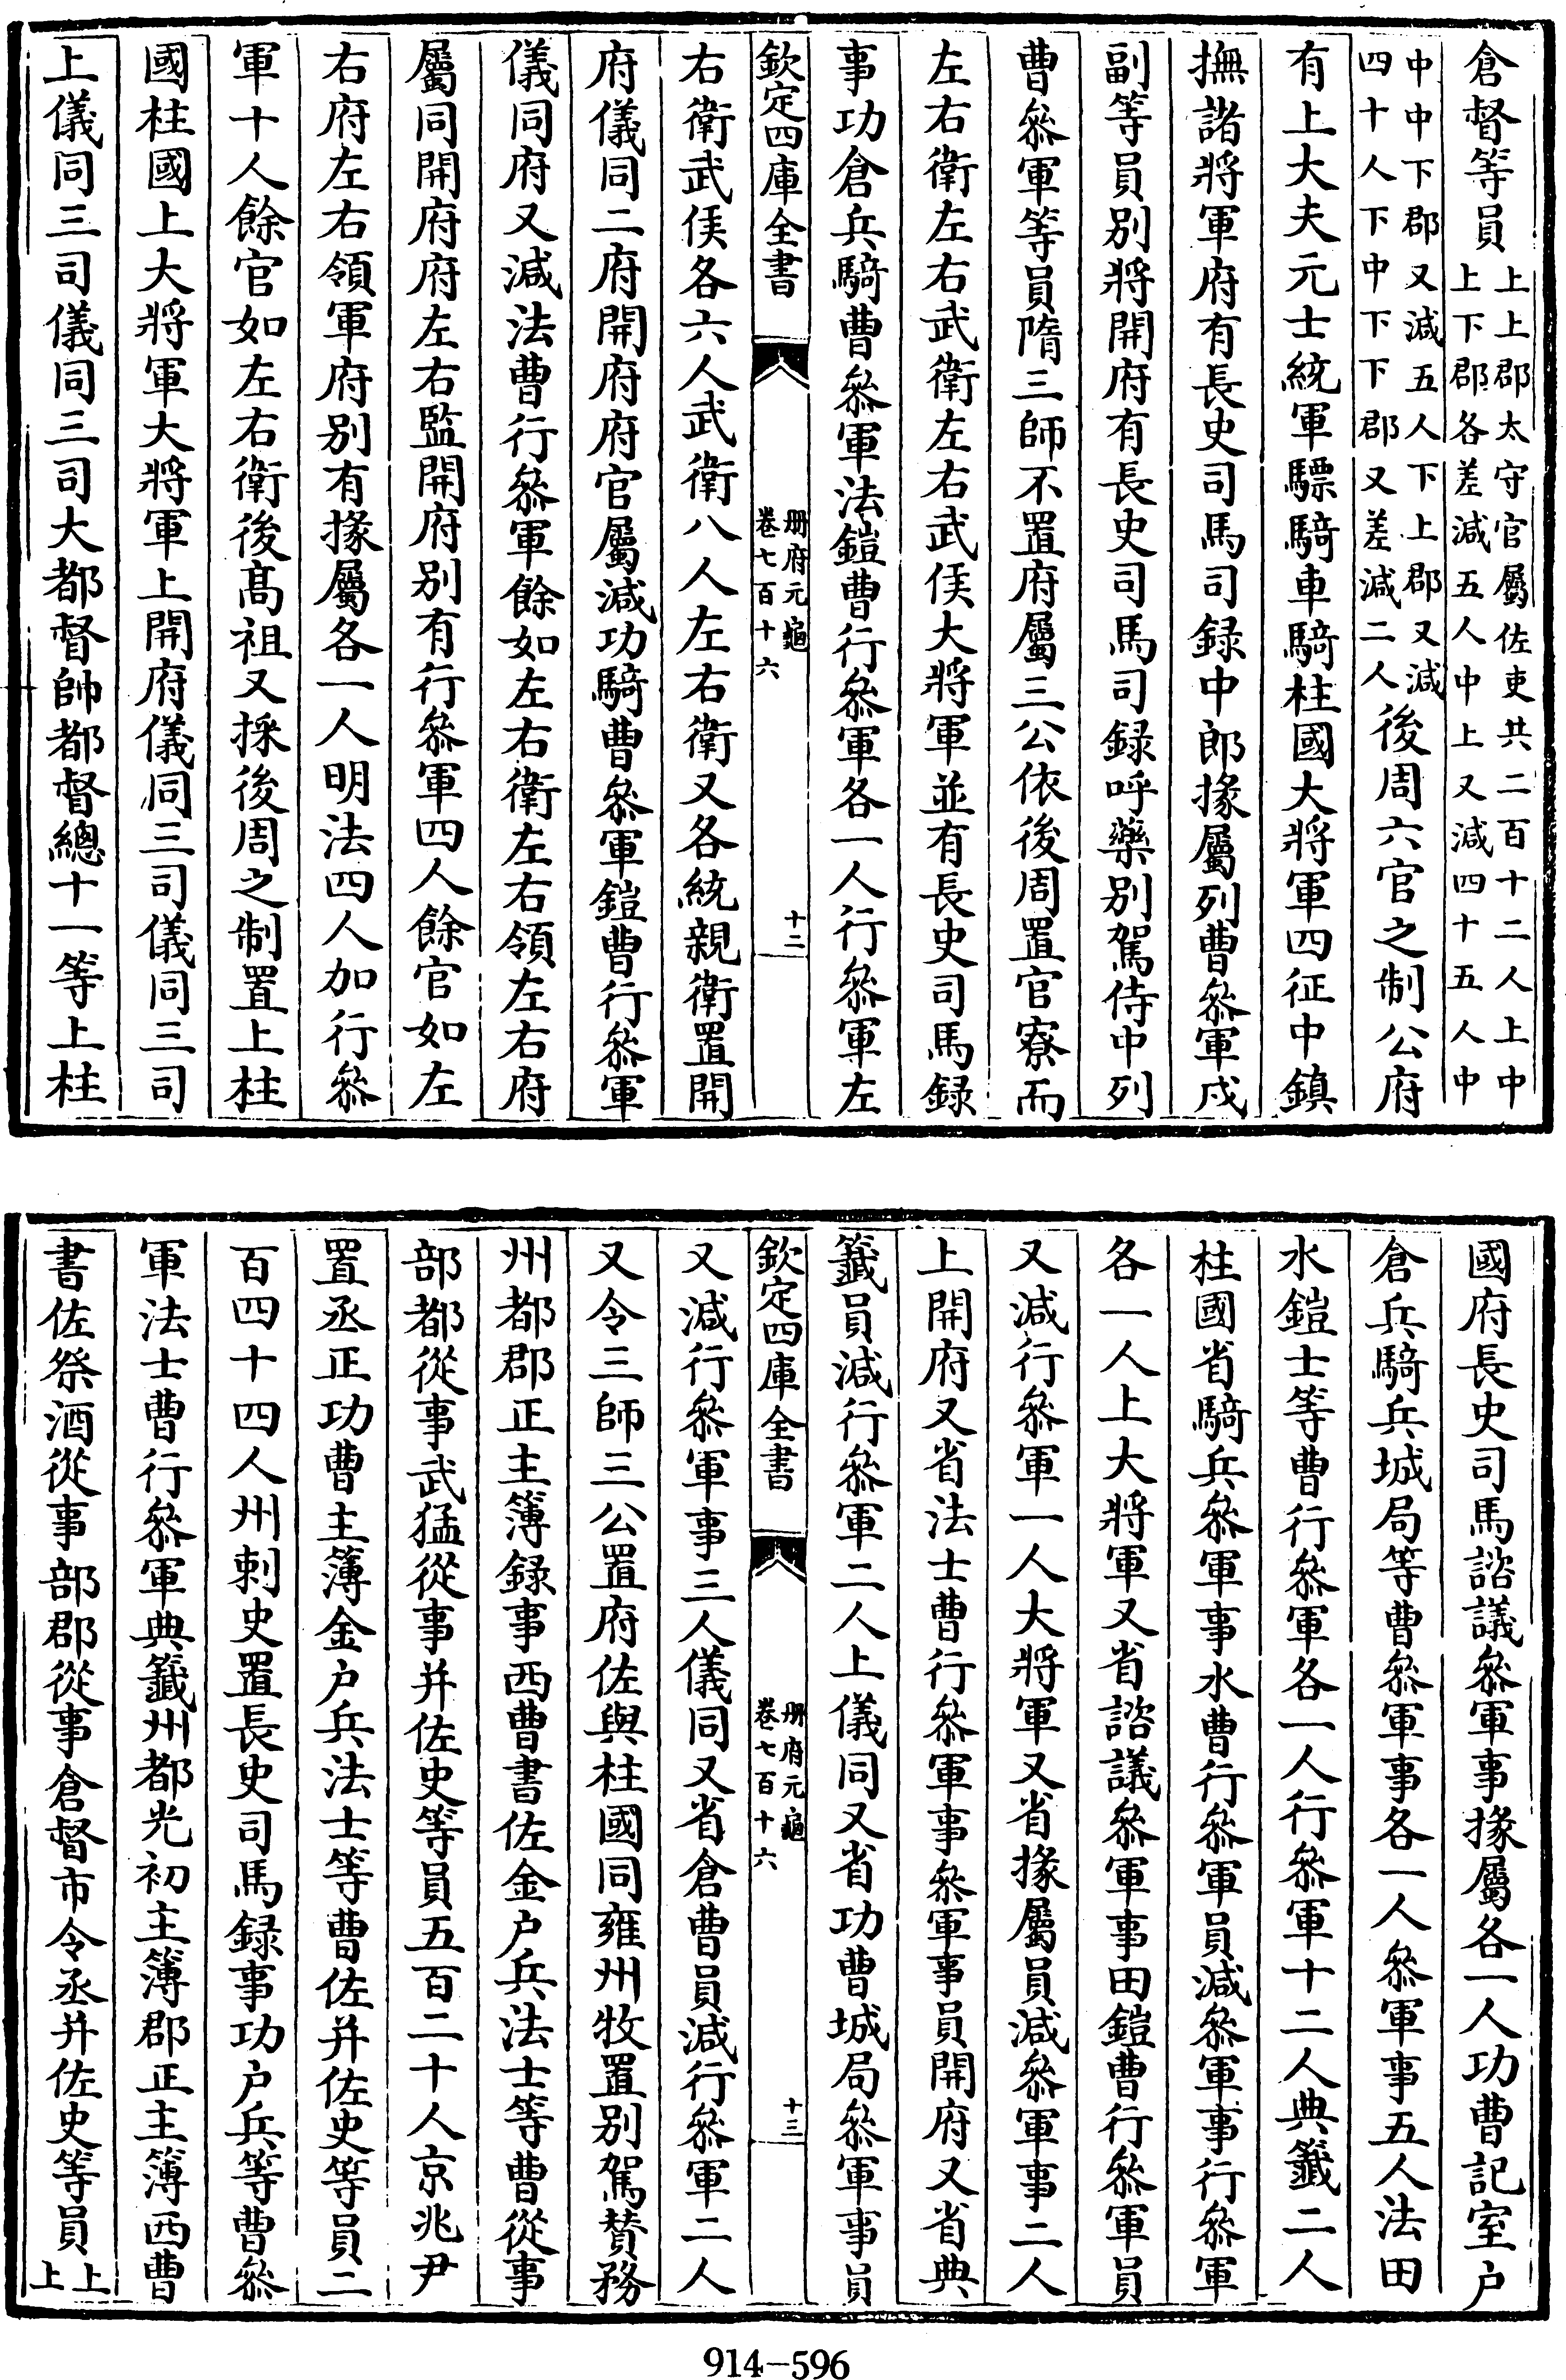 倉督等員上上郡太守官屬佐吏共二百十二人上中上下郡各差減五人中上又減四十五人中
中中下郡又減五人下上郡又減四十人下中下下郡又差減二人後周六官之制公府
有上大夫元士統軍驃騎車騎柱國大將軍四征中鎮
撫諸將軍府有長史司馬司録中郎掾屬列曹叅軍戍
副等員别將開府有長史司馬司録呼藥别駕侍中列
曹叅軍等員隋三師不置府屬三公依後周置官寮而
左右衛左右武衛左右武𠉀大將軍並有長史司馬録
事功倉兵騎曹叅軍法鎧曹行叅軍各一人行叅軍左
欽定四庫全書 册府元龜 卷七百十六 十二
右衛武𠉀各六人武衛八人左右衛又各統親衛置開
府儀同二府開府府官屬減功騎曹叅軍鎧曹行叅軍
儀同府又減法曹行叅軍餘如左右衛左右領左右府
屬同開府府左右監開府别有行叅軍四人餘官如左
右府左右領軍府别有掾屬各一人明法四人加行叅
軍十人餘官如左右衛後髙祖又採後周之制置上柱
國柱國上大將軍大將軍上開府儀同三司儀同三司
上儀同三司儀同三司大都督帥都督總十一等上柱
國府長史司馬諮議叅軍事掾屬各一人功曹記室户
倉兵騎兵城局等曹叅軍事各一人叅軍事五人法田
水鎧士等曹行叅軍各一人行叅軍十二人典籤二人
柱國省騎兵叅軍事水曹行叅軍員減叅軍事行叅軍
各一人上大將軍又省諮議叅軍事田鎧曹行叅軍員
又減行叅軍一人大將軍又省掾屬員減叅軍事二人
上開府又省法士曹行叅軍事叅軍事員開府又省典
籤員減行叅軍二人上儀同又省功曹城局叅軍事員
欽定四庫全書 册府元龜 卷七百十六 十三
又減行叅軍事三人儀同又省倉曹員減行叅軍二人
又令三師三公置府佐與柱國同雍州牧置别駕賛務
州都郡正主簿録事西曹書佐金户兵法士等曹從事
部都從事武猛從事并佐史等員五百二十人京兆尹
置丞正功曹主薄金户兵法士等曹佐并佐史等員二
百四十四人州刺史置長史司馬録事功户兵等曹叅
軍法士曹行叅軍典籤州都光初主簿郡正主簿西曹
書佐祭酒從事部郡從事倉督市令丞并佐史等員上上
914-596